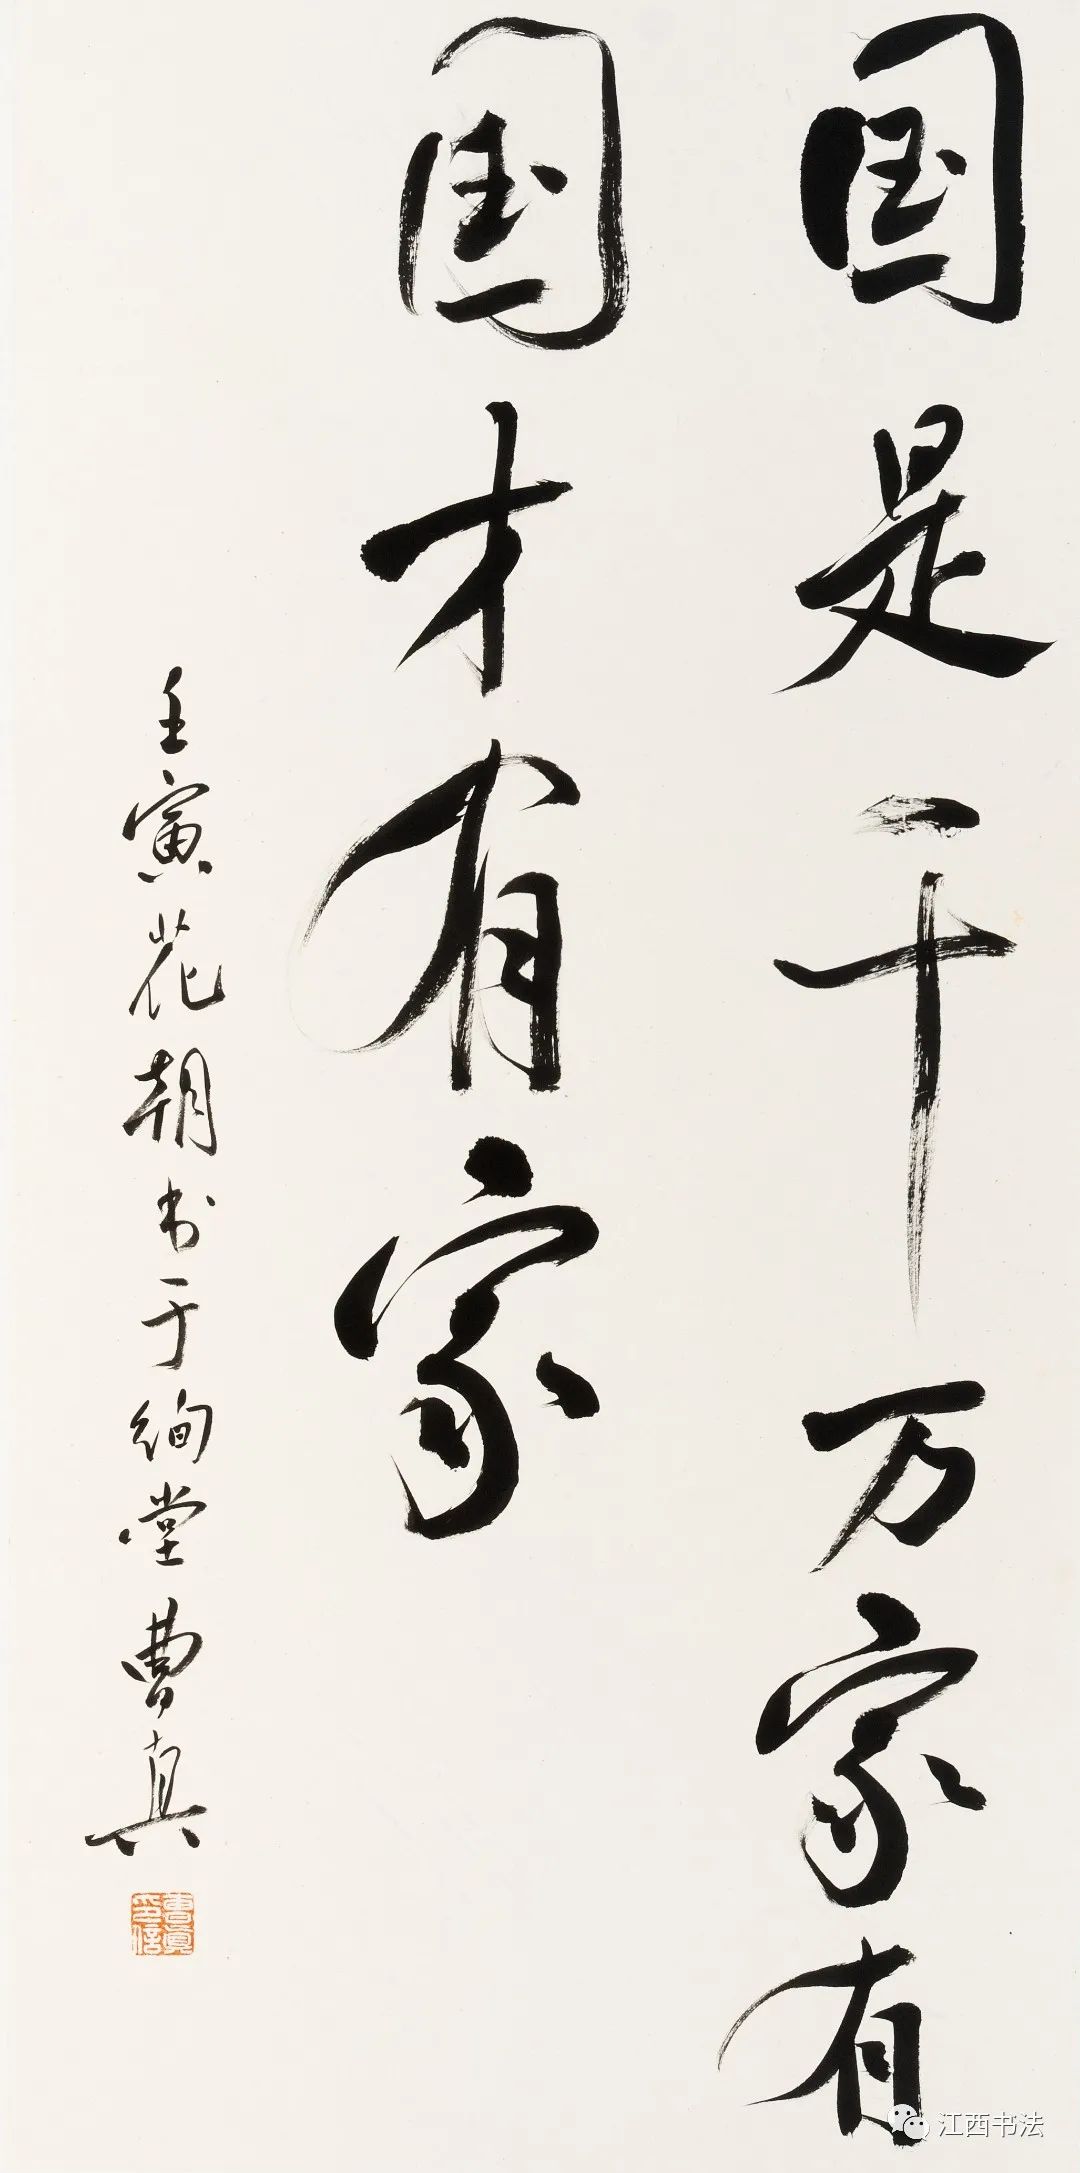 国是千万家有
国才有家
壬寅花朝书于绚堂曹真
曹真印信
江西书法